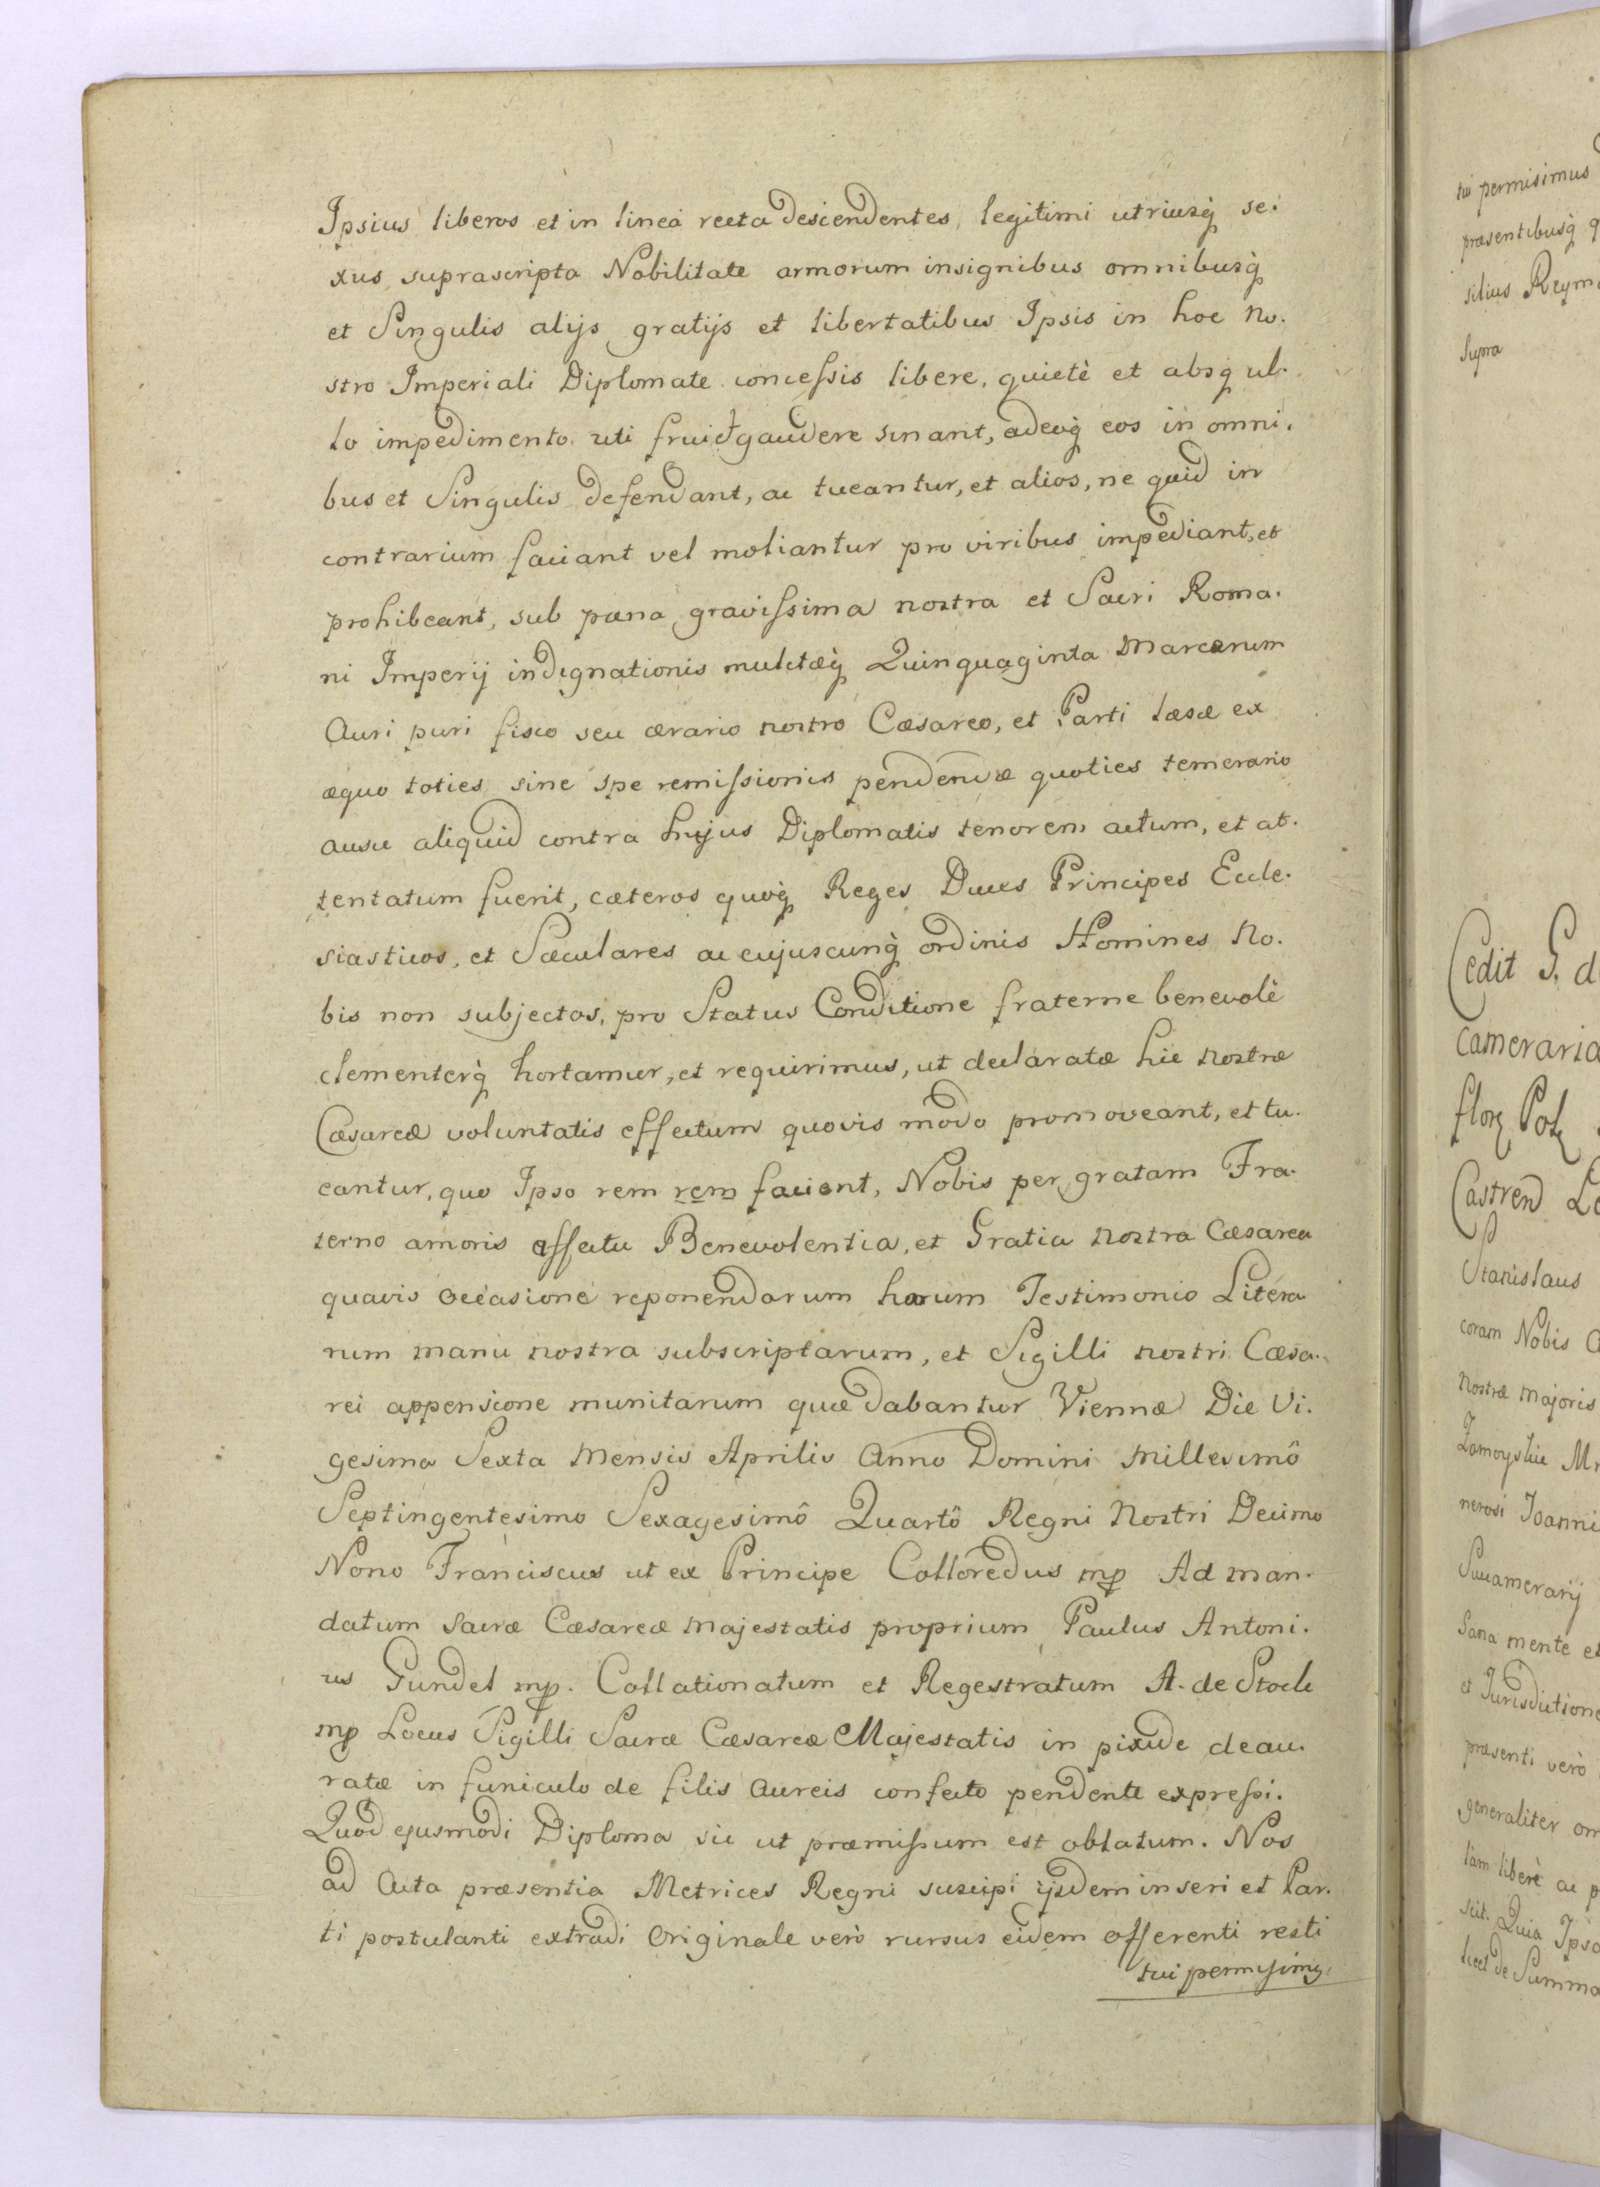 Ipsius liberos et in linea recta descendentes, legitimi utriusq́ se.
xus suprascripta Nobilitate armorum insignibus omnibusq́
et Singulis alijs gratijs et libertatibus Ipsis in hoc No.
stro Imperiali Diplomate concessis libere, quietè et absq́ ul.
lo impedimento uti frui et gaudere sinant, adeoq́ eos in omni.
bus et Singulis defendant, ac tueantur, et alios, ne quid in
contrarium faciant vel moliantur pro viribus impediant, et
prohibeant, sub pœna gravissima nostra et Sacri Roma.
ni Imperij indignationis mulctæq́ Quinquaginta Marcarum
Auri puri fisco seu ærario nostro Cæsareo, et Parti læsæ ex
æquo toties sine spe remissionis pendendæ quoties temerario
ausu aliquid contra hujus Diplomatis tenorem actum, et at.
tentatum fuerit, cæteros quoq́ Reges Duces Principes Eccle.
siasticos, et Sæculares ac cujuscunq́ ordinis Homines No.
bis non subjectos, pro Status Conditione fraterne benevolè
clementerq́ hortamur, et requirimus, ut declaratæ hic nostræ
Cæsareæ voluntatis effectum quovis modo promoveant, et tu.
eantur, quo Ipso rem rem facient, Nobis per gratam Fra.
terno amoris affectu Benevolentia, et Gratia nostra Cæsarea
quavis occasione reponendarum harum Testimonio Litera
rum manu nostra subscriptarum, et Sigilli nostri Cæsa.
rei appensione munitarum quæ dabantur Viennæ Die Vi.
gesima Sexta Mensis Aprilis Anno Domini Millesimô
Septingentesimo Sexagesimô Quartô Regni Nostri Decimo
Nono Franciscus ut ex Principe Colloredus mp Ad man.
datum Sacræ Cæsareæ Majestatis proprium Paulus Antoni.
us Gundel mp. Collationatum et Regestratum A. de Stock
mp Locus Sigilli Sacræ Cæsareæ Majestatis in pixide deau.
ratæ in funiculo de filis aureis confecto pendente expressi.
Quod ejusmodi Diploma sic ut præmissum est oblatum. Nos
ad Acta præsentia Metrices Regni suscipi ijsdem inseri et Par.
ti postulanti extradi Originale verò rursus eidem offerenti resti
tui permisimus.
tui permisimus
præsentibusq́
Supra
Cedit G.
Cameraria
Castren
Stanislaus
coram Nobis
Nostræ Majoris
nerosi Joanni
Succamerarij
Sana mente et
et Jurisdictione
præsenti verò
generaliter om
liam liberè ac p
scit. Quia Ipso
licet de Summa